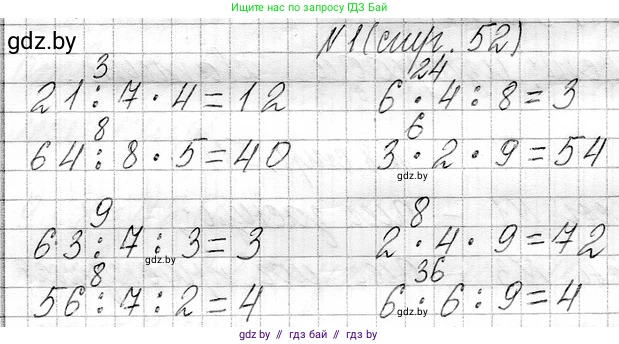 Ищите нас по запросу ГДЗ.БАЙ
gdz.by
№1 (стр. 52)
3 24
21 : 7 · 4 = 12 6 · 4 : 8 = 3
8 6
64 : 8 · 5 = 40 3 · 2 · 9 = 54
gdz.by
9 8
63 : 7 : 3 = 3 2 · 4 · 9 = 72
gdz.by
8 36
56 : 7 : 2 = 4 6 · 6 : 9 = 4
gdz.by
gdz.by // гдз бай // gdz.by